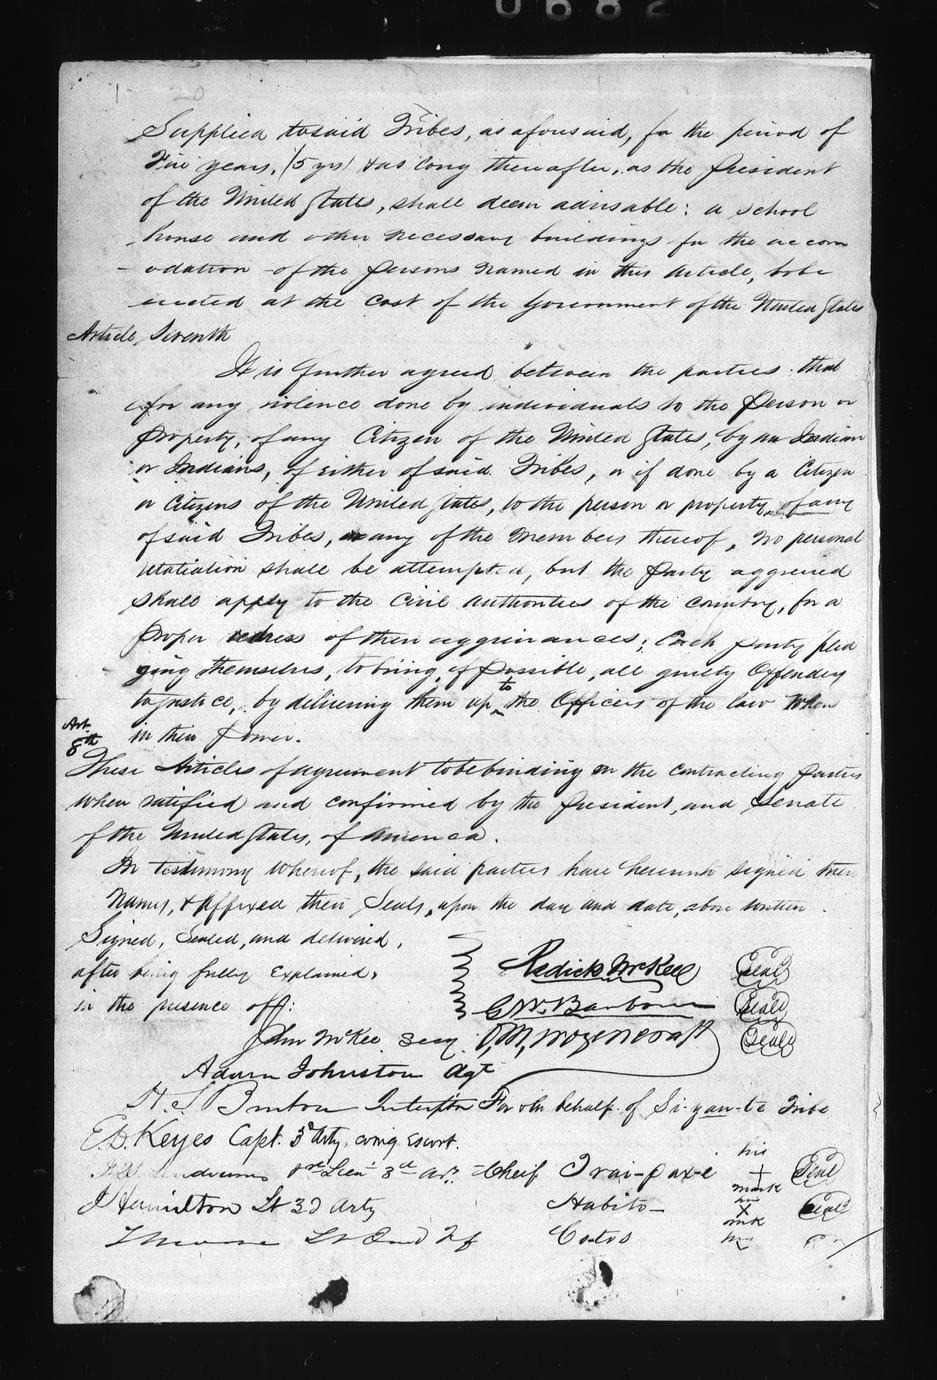 0682
20
Supplied to said Tribes, as aforesaid, for the period of
Five years, (5 yrs) & as long thereafter, as the President
of the United States, shall deem advisable: a school
house and other necessary buildings for the accom
odation of the persons named in this Article, to be
erected at the cost of the Government of the United States
Article Seventh
It is further agreed between the parties that
for any violence done by individuals to the person or
property, of any Citizen of the United States, by an Indian
or Indians, of either of said Tribes, or if done by a Citizen
or Citizens of the United States, to the person or property of any
of said Tribes, or any of the members thereof, no personal
retaliation shall be attempted, but the party aggrieved
shall apply to the Civil authorities of the country, for a
proper redress of their aggrievances; Each party pled
ging themselves, to bring, if possible, all guilty offenders
to justice, by delivering them up to the Officers of the law when
in their power.
Art. 8th
These Articles of agreement to be binding on the contracting parties
when ratified and confirmed by the President, and Senate
of the United States, of America.
In testimony whereof, the said parties have hereunto signed their
Names, & Affixed their Seals, upon the day and date, above written.
Signed, Sealed, and delivered,
after being fully Explained,
in the presence off:
Redick McKee Seal
G W. Barbour Seal
John McKee Secy. O, M, Wozencraft Seal
Adam Johnston Agt
H. S. Burton Interpter For & in behalf of Si-yan-te Tribe
E. D. Keyes Capt. 3d Arty. comg Escort.
1st Lieut 3d Arty. Cheif Trai-pax-e his + mark Seal
J Hamilton Lt 3d Arty Habito his X mrk Seal
Lt 2nd Inf Co-tos his